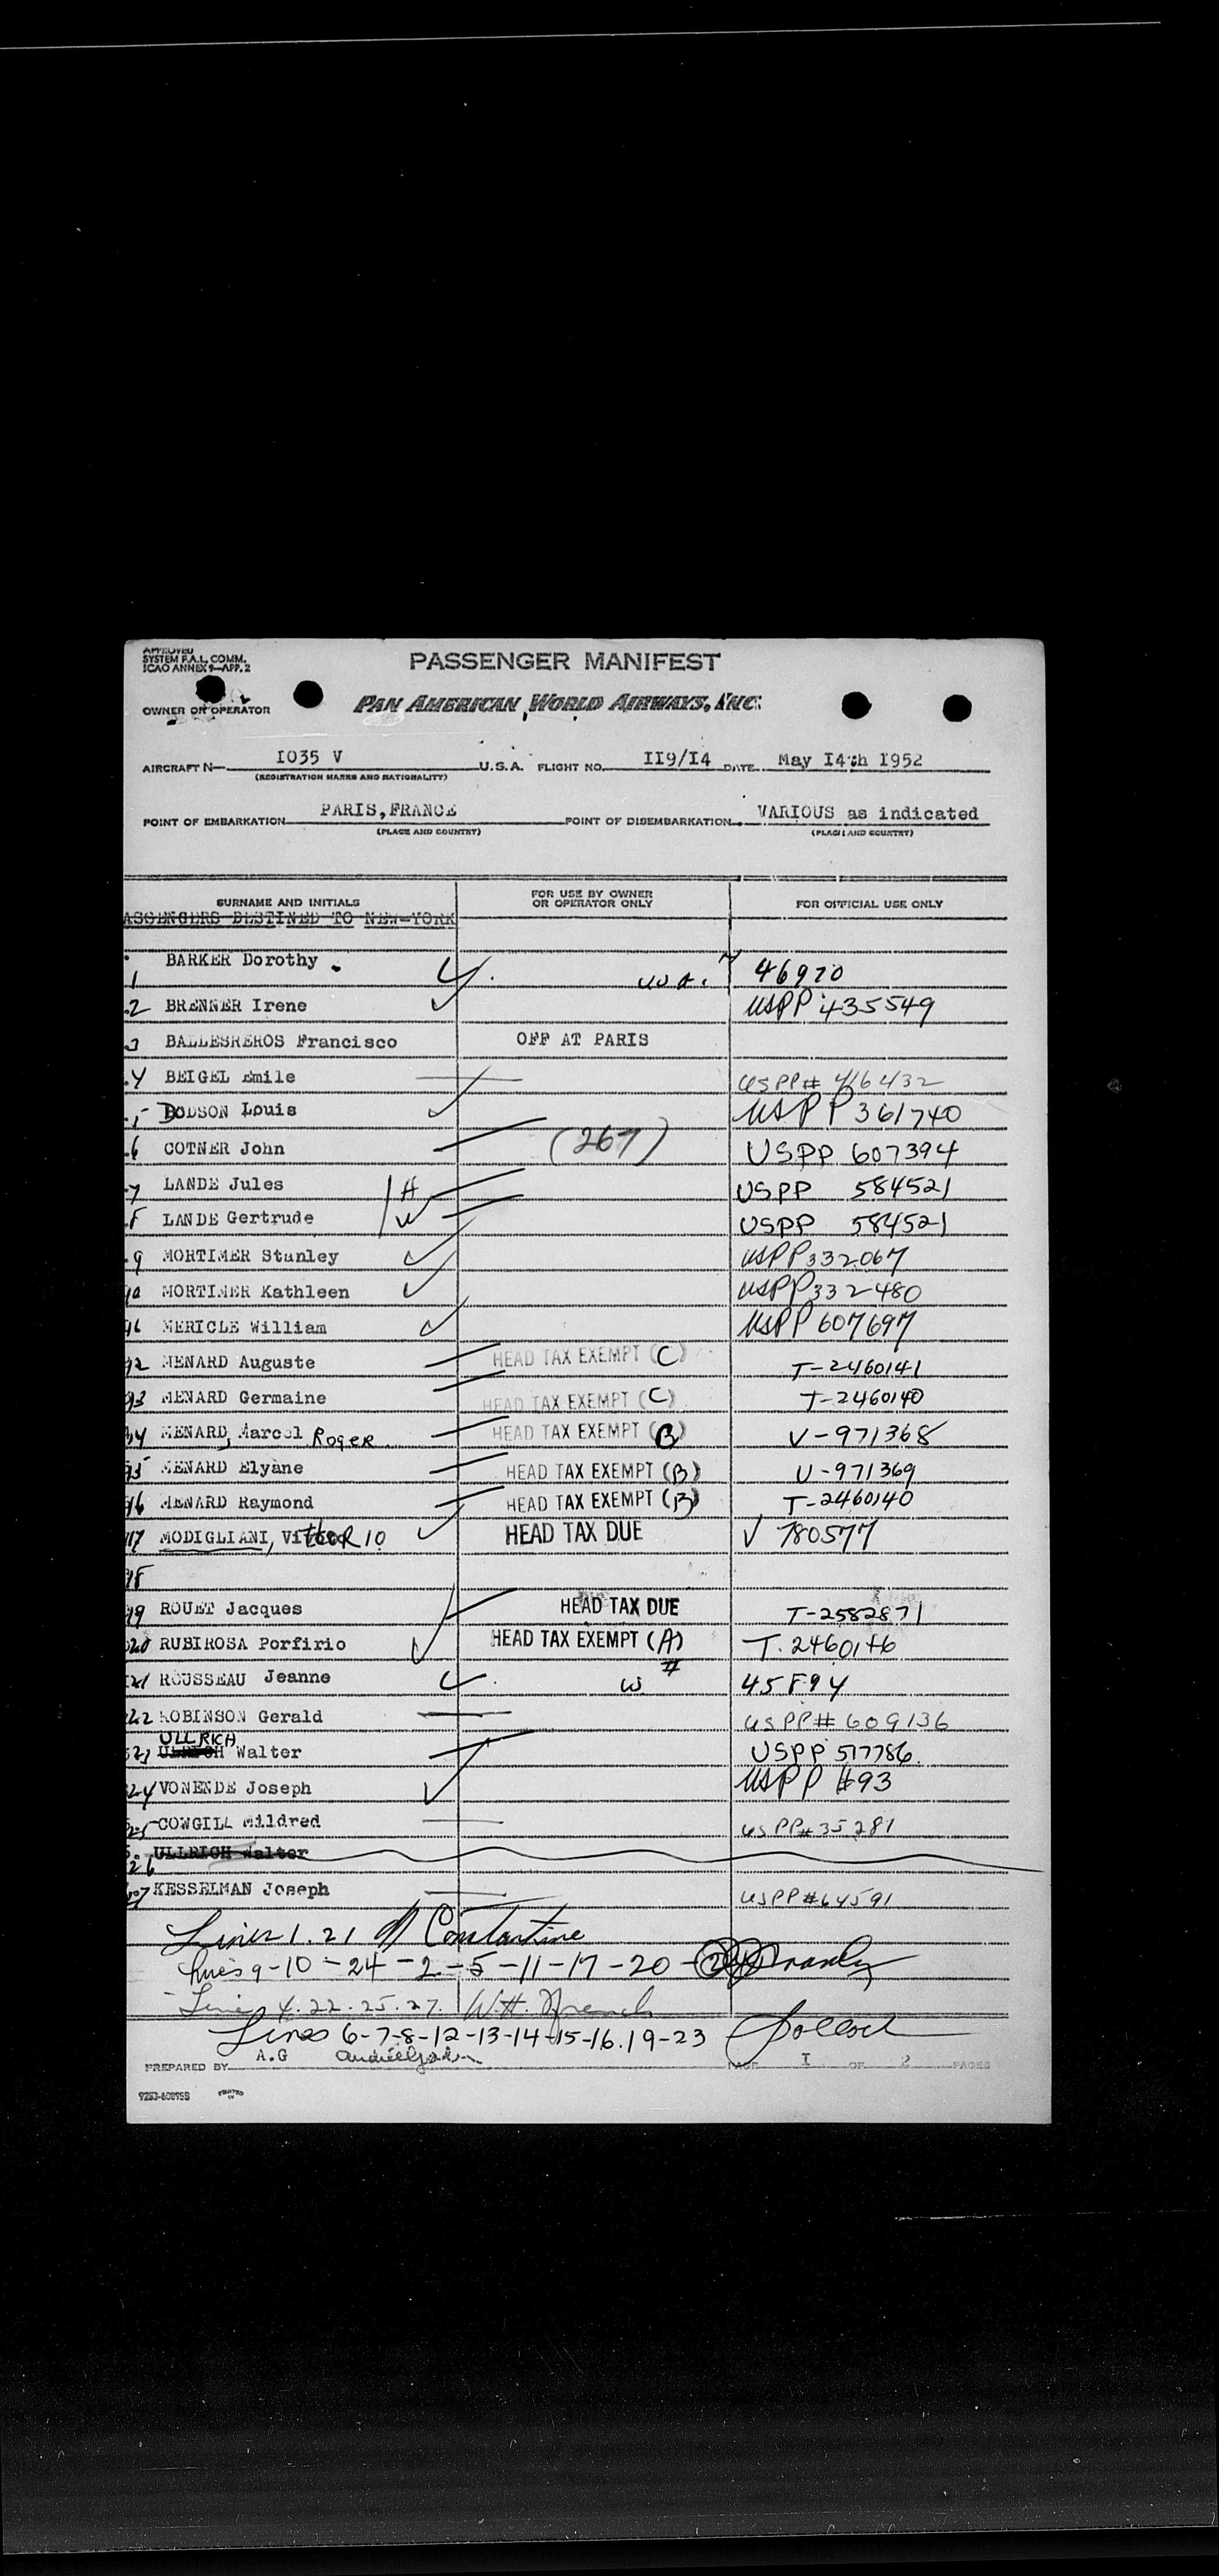 APPROVED
SYSTEM F.A.L. COMM.
ICAO ANNEX 9—APP. 2
PASSENGER MANIFEST
OWNER OR OPERATOR PAN AMERICAN WORLD AIRWAYS, INC.
AIRCRAFT N— I035 V U.S.A. FLIGHT NO. II9/I4 DATE May I4th I952
(REGISTRATION MARKS AND NATIONALITY)
POINT OF EMBARKATION PARIS, FRANCE POINT OF DISEMBARKATION VARIOUS as indicated
(PLACE AND COUNTRY) (PLACE AND COUNTRY)
SURNAME AND INITIALS FOR USE BY OWNER OR OPERATOR ONLY FOR OFFICIAL USE ONLY
ASSENGERS DESTINED TO NEW-YORK
1 BARKER Dorothy 46970
2 BRENNER Irene USPP 435549
3 BALLESREROS Francisco OFF AT PARIS
4 BEIGEL Emile USPP# 416432
5 DODSON Louis USPP 361740
6 COTNER John (267) USPP 607394
7 LANDE Jules H USPP 584521
8 LANDE Gertrude W USPP 584521
9 MORTIMER Stanley USPP 332067
10 MORTIMER Kathleen USPP 332480
11 MERICLE William USPP 607697
12 MENARD Auguste HEAD TAX EXEMPT (C) T-2460141
13 MENARD Germaine HEAD TAX EXEMPT (C) T-2460140
14 MENARD, Marcel Roger HEAD TAX EXEMPT (B) V-971368
15 MENARD Elyane HEAD TAX EXEMPT (B) V-971369
16 MENARD Raymond HEAD TAX EXEMPT (B) T-2460140
17 MODIGLIANI, VittoRIO HEAD TAX DUE V 780577
18
19 ROUET Jacques HEAD TAX DUE T-2582871
20 RUBIROSA Porfirio HEAD TAX EXEMPT (A) T. 2460146
21 ROUSSEAU Jeanne W # 45894
22 ROBINSON Gerald USPP# 609136
ULLRICH
23 Walter USPP 517786.
24 VONENDE Joseph USPP #93
25 COWGILL Mildred USPP# 35281
26 ULLRICH Walter
27 KESSELMAN Joseph USPP# 64591
Lines 1. 21 Constantine
Lines 9-10-24-2-5-11-17-20-
Line 4. 22. 25. 27. W.H. French
Lines 6-7-8-12-13-14-15-16. 19-23 Pollock
PREPARED BY A.G PAGE I OF 2 PAGES
PRINTED IN